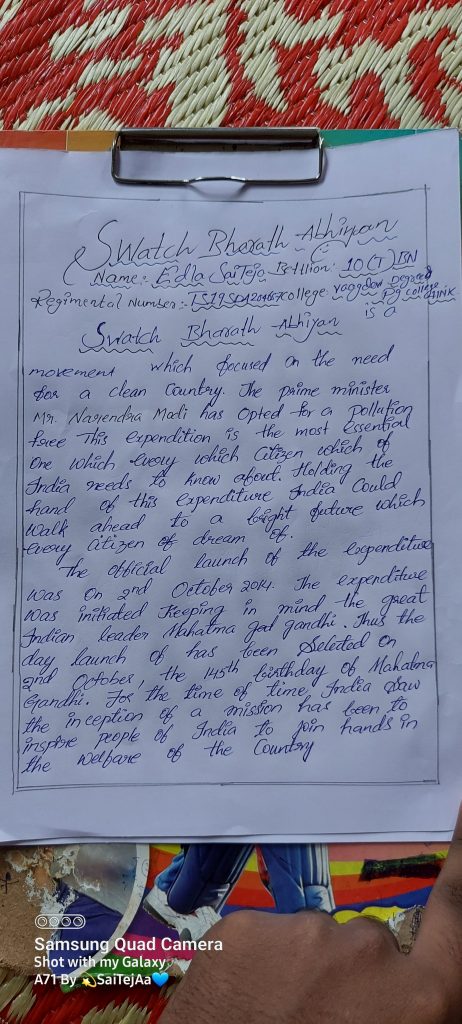 Swatch Bharath Abhiyan
Name:- Edla SaiTeja Bettlion:- 10(T)BN
Regimental Number:- College: vaagdevi Degree & Pg college
Swatch Bharath Abhiyan is a
movement which focused on the need
for a clean Country. The prime minister
Mr. Narendra Madi has Opted for a Pollution
free This expendition is the most Essential
One which every which Citizen which of
India needs to know about. Holding the
hand of this expenditure India Could
walk ahead to a bright future which
every Citizen of dream of.
The Official launch of the expenditure
was On 2nd October 2014. The expenditure
was initiated Keeping in mind the great
Indian leader Mahatma gandhi. Thus the
day launch of has been Seleted on
2nd October, the 145th birthday of Mahatma
Gandhi. For the time of time, India Saw
the inception of a mission has been to
inspire people of India to join hands in
the welfare of the Country
Samsung Quad Camera
Shot with my Galaxy
A71 By 💫SaiTejAa💙